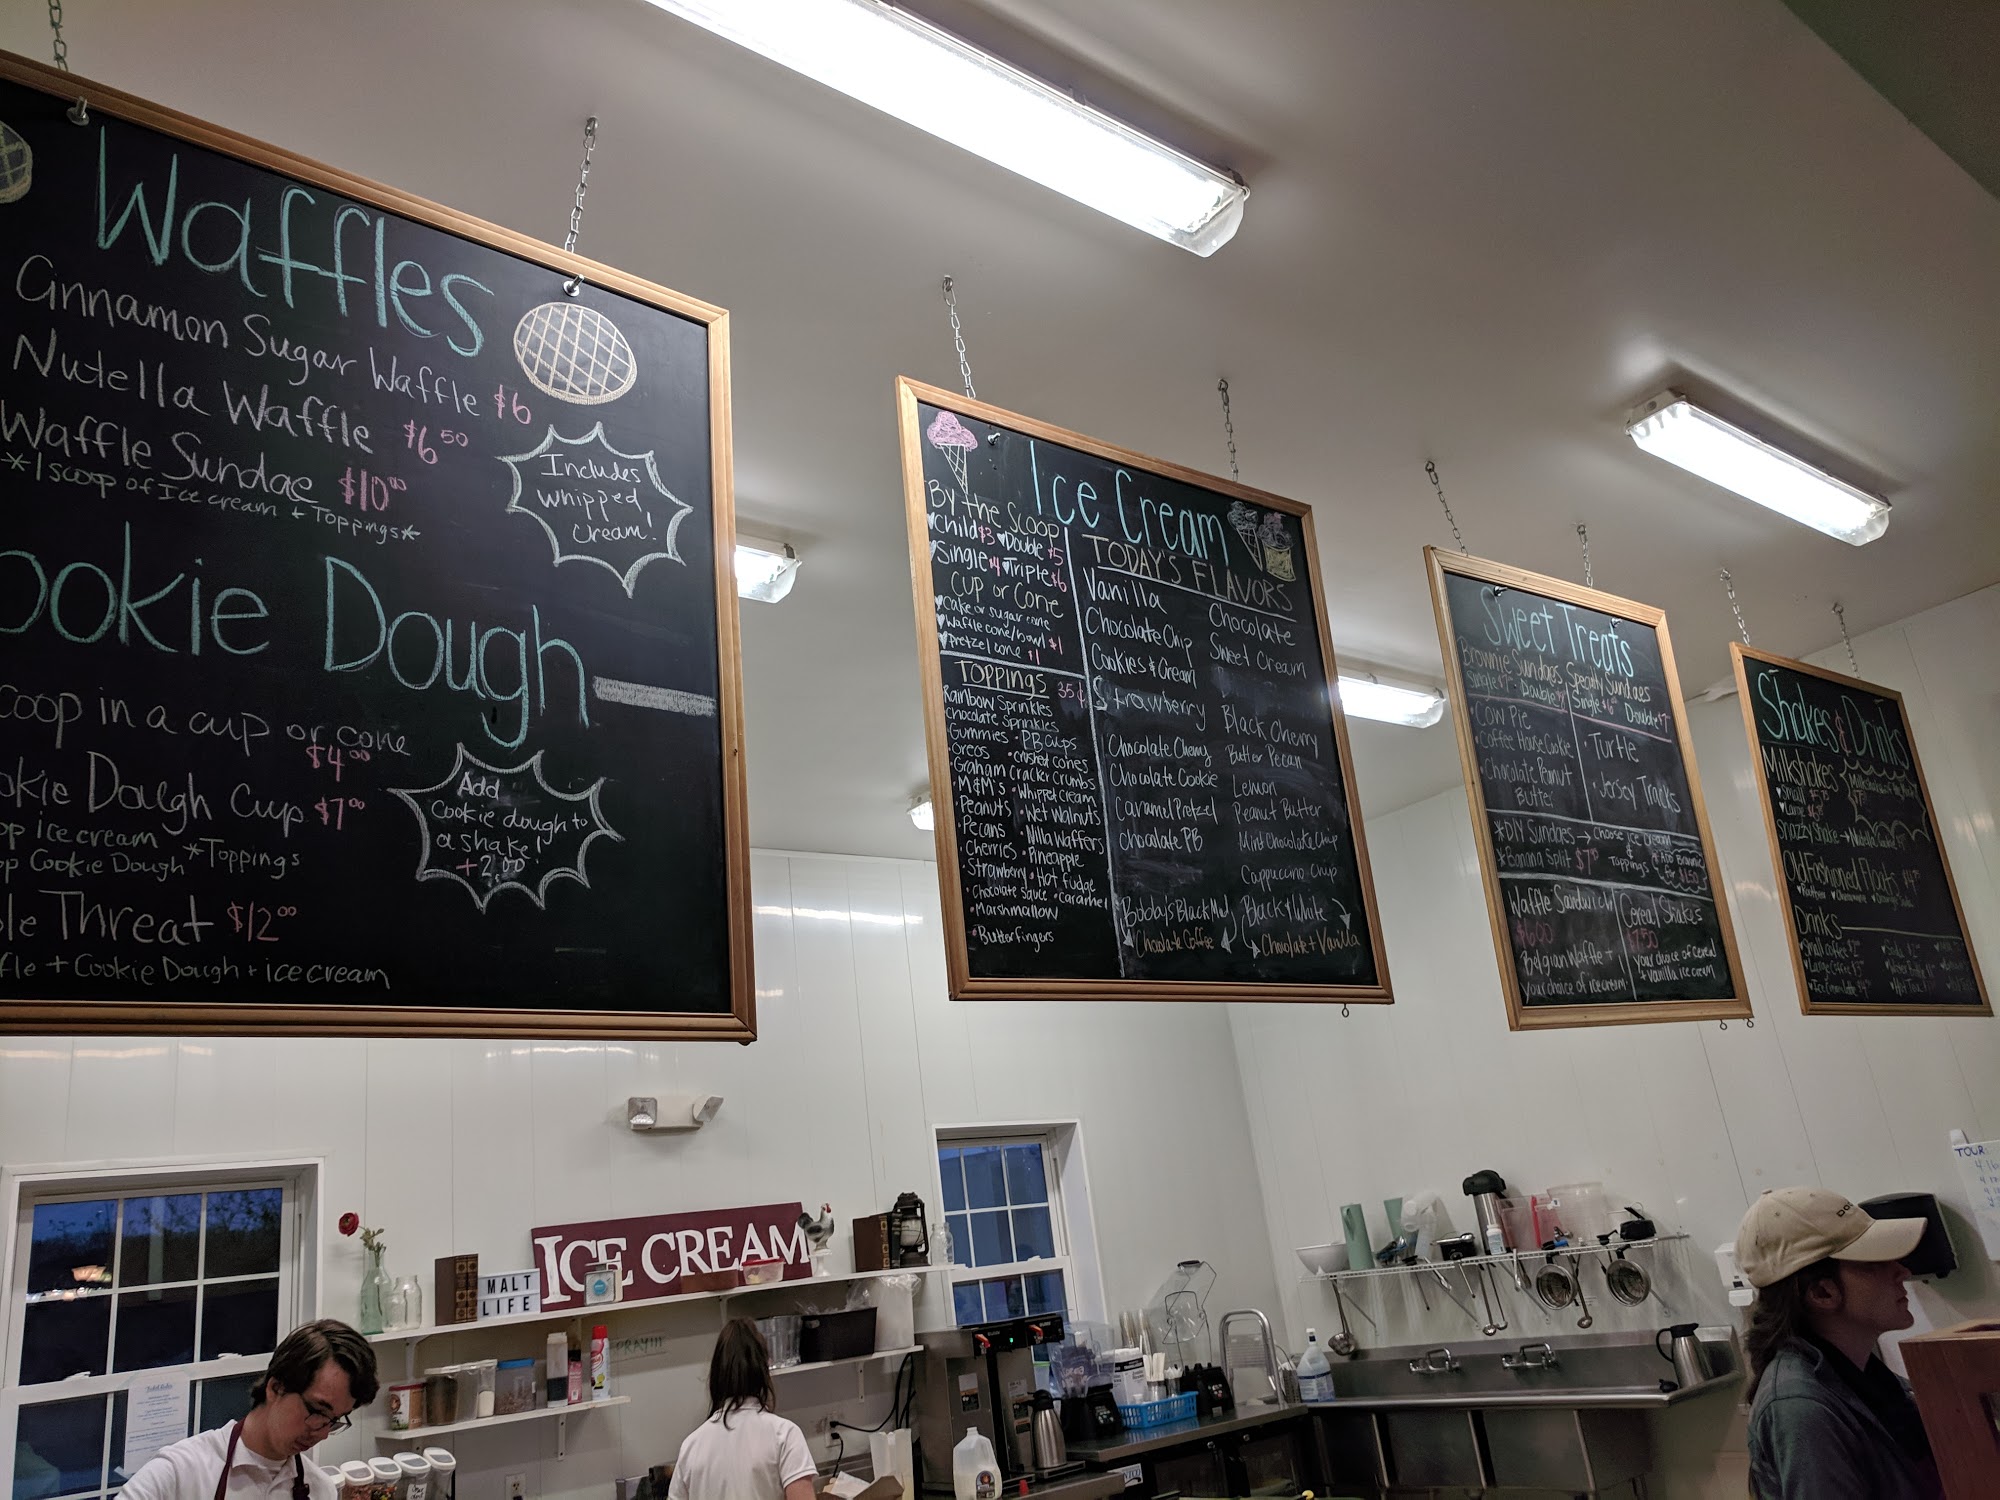 Waffles
Cinnamon Sugar Waffle $6
Nutella Waffle $6.50
Waffle Sundae $10.00
*1 scoop of Ice cream + Toppings*
Includes
whipped
cream!
ookie Dough
coop in a cup or cone
$4.00
okie Dough Cup $7.00
op ice cream *Toppings
op Cookie Dough
le Threat $12.00
ffle + Cookie Dough + ice cream
Add
Cookie dough to
a shake!
+2.00
Ice Cream
By the Scoop
Child $3 Double $5
Single $4 Triple $6
Cup or Cone
Cake or sugar cone
Waffle cone/bowl $1
Pretzel cone $1
TOPPINGS 35¢
Rainbow Sprinkles
Chocolate Sprinkles
Gummies • PB cups
Oreos • crushed cones
Graham cracker crumbs
M&M's • Whipped Cream
Peanuts • Wet Walnuts
Pecans • Nilla Waffers
Cherries • Pineapple
Strawberry • Hot fudge
Chocolate sauce • caramel
Marshmallow
Butterfingers
TODAY'S FLAVORS
Vanilla
Chocolate Chip
Cookies & Cream
Strawberry
Chocolate Cherry
Chocolate Cookie
Caramel Pretzel
Chocolate PB
Chocolate Coffee
Chocolate
Sweet Cream
Black Cherry
Butter Pecan
Lemon
Peanut Butter
Mint Chocolate Chip
Cappuccino Chip
Black & White
Chocolate + Vanilla
Sweet Treats
Brownie Sundaes
Single Double
• Cow Pie
• Coffee House Cookie
• Chocolate Peanut
Butter
Specialty Sundaes
Single Double
• Turtle
• Jersey Tracks
*DIY Sundaes → Choose ice cream
& Toppings
*Banana Split
Add Brownie
for $1.50
Waffle Sandwich
$6.00
Belgian Waffle +
your choice of ice cream
Cereal Shakes
$7.50
your choice of cereal
+ vanilla ice cream
Shakes & Drinks
Milkshakes
Small
Large
Snazzy Shake
Old Fashioned Floats
Drinks
Small coffee $2
Large Coffee $3
ICE CREAM
MALT
LIFE
TOUR